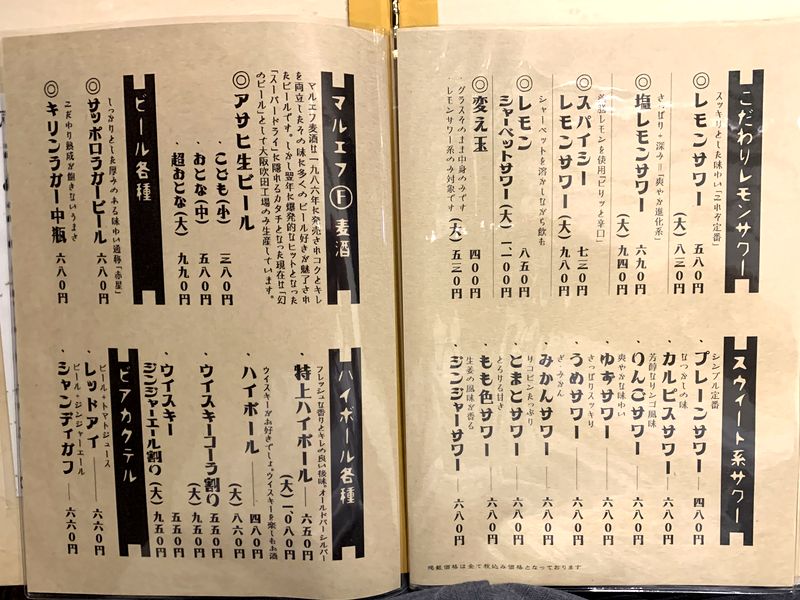 こだわりレモンサワー
スッキリとした味わい「これぞ定番」
◎レモンサワー 五八〇円
(大)八三〇円
さっぱり+深み=「爽やか進化系」
◎塩レモンサワー 六九〇円
(大)九四〇円
レモンを使用「ピリッと辛口」
◎スパイシー
レモンサワー 七三〇円
(大)九八〇円
シャーベットを溶かしながら飲も
◎レモン
シャーベットサワー 八五〇円
(大)一、一〇〇円
◎変え玉 四〇〇円
(大)五三〇円
・グラスそのまま中身のみです
・レモンサワー系のみ対象です
スウィート系サワー
シンプル定番
・プレーンサワー 四八〇円
なつかしの味
・カルピスサワー 六八〇円
芳醇なリンゴ風味
・りんごサワー 六八〇円
爽やかな味わい
・ゆずサワー 六八〇円
さっぱりスッキリ
・うめサワー 六八〇円
・みかんサワー 六八〇円
リコピンたっぷり
・とまとサワー 六八〇円
とろける甘さ
・もも色サワー 六八〇円
生姜の風味が香る
・ジンジャーサワー 六八〇円
掲載価格は全て税込み価格となっております
マルエフ Ⓕ 麦酒
マルエフ麦酒は一九八六年に発売されコクとキレ
を両立したその味に多くのビール好きが魅了され
たビールです。しかし翌年に爆発的なヒットとなった
「スーパードライ」に隠れるカタチとなった現在は「幻
のビール」として大阪吹田工場のみ生産しています。
◎アサヒ生ビール
・こども(小) 三八〇円
・おとな(中) 五八〇円
・超おとな(大) 九九〇円
ビール各種
しっかりとした厚みのある味わい通称「赤星」
◎サッポロラガービール 六八〇円
こだわり熟成が飽きないうまさ
◎キリンラガー中瓶 六八〇円
ハイボール各種
フレッシュな香りとキレの良い後味。オールドパーシルバー
・特上ハイボール 六五〇円
(大)一、〇八〇円
ウイスキーがお好きでしょ。ウイスキーを楽しむお酒
・ハイボール 四八〇円
(大)八六〇円
・ウイスキーコーラ割り 五五〇円
(大)九五〇円
・ウイスキー
ジンジャーエール割り 五五〇円
(大)九五〇円
ビアカクテル
ビール+トマトジュース
・レッドアイ 六六〇円
ビール+ジンジャーエール
・シャンディガフ 六六〇円